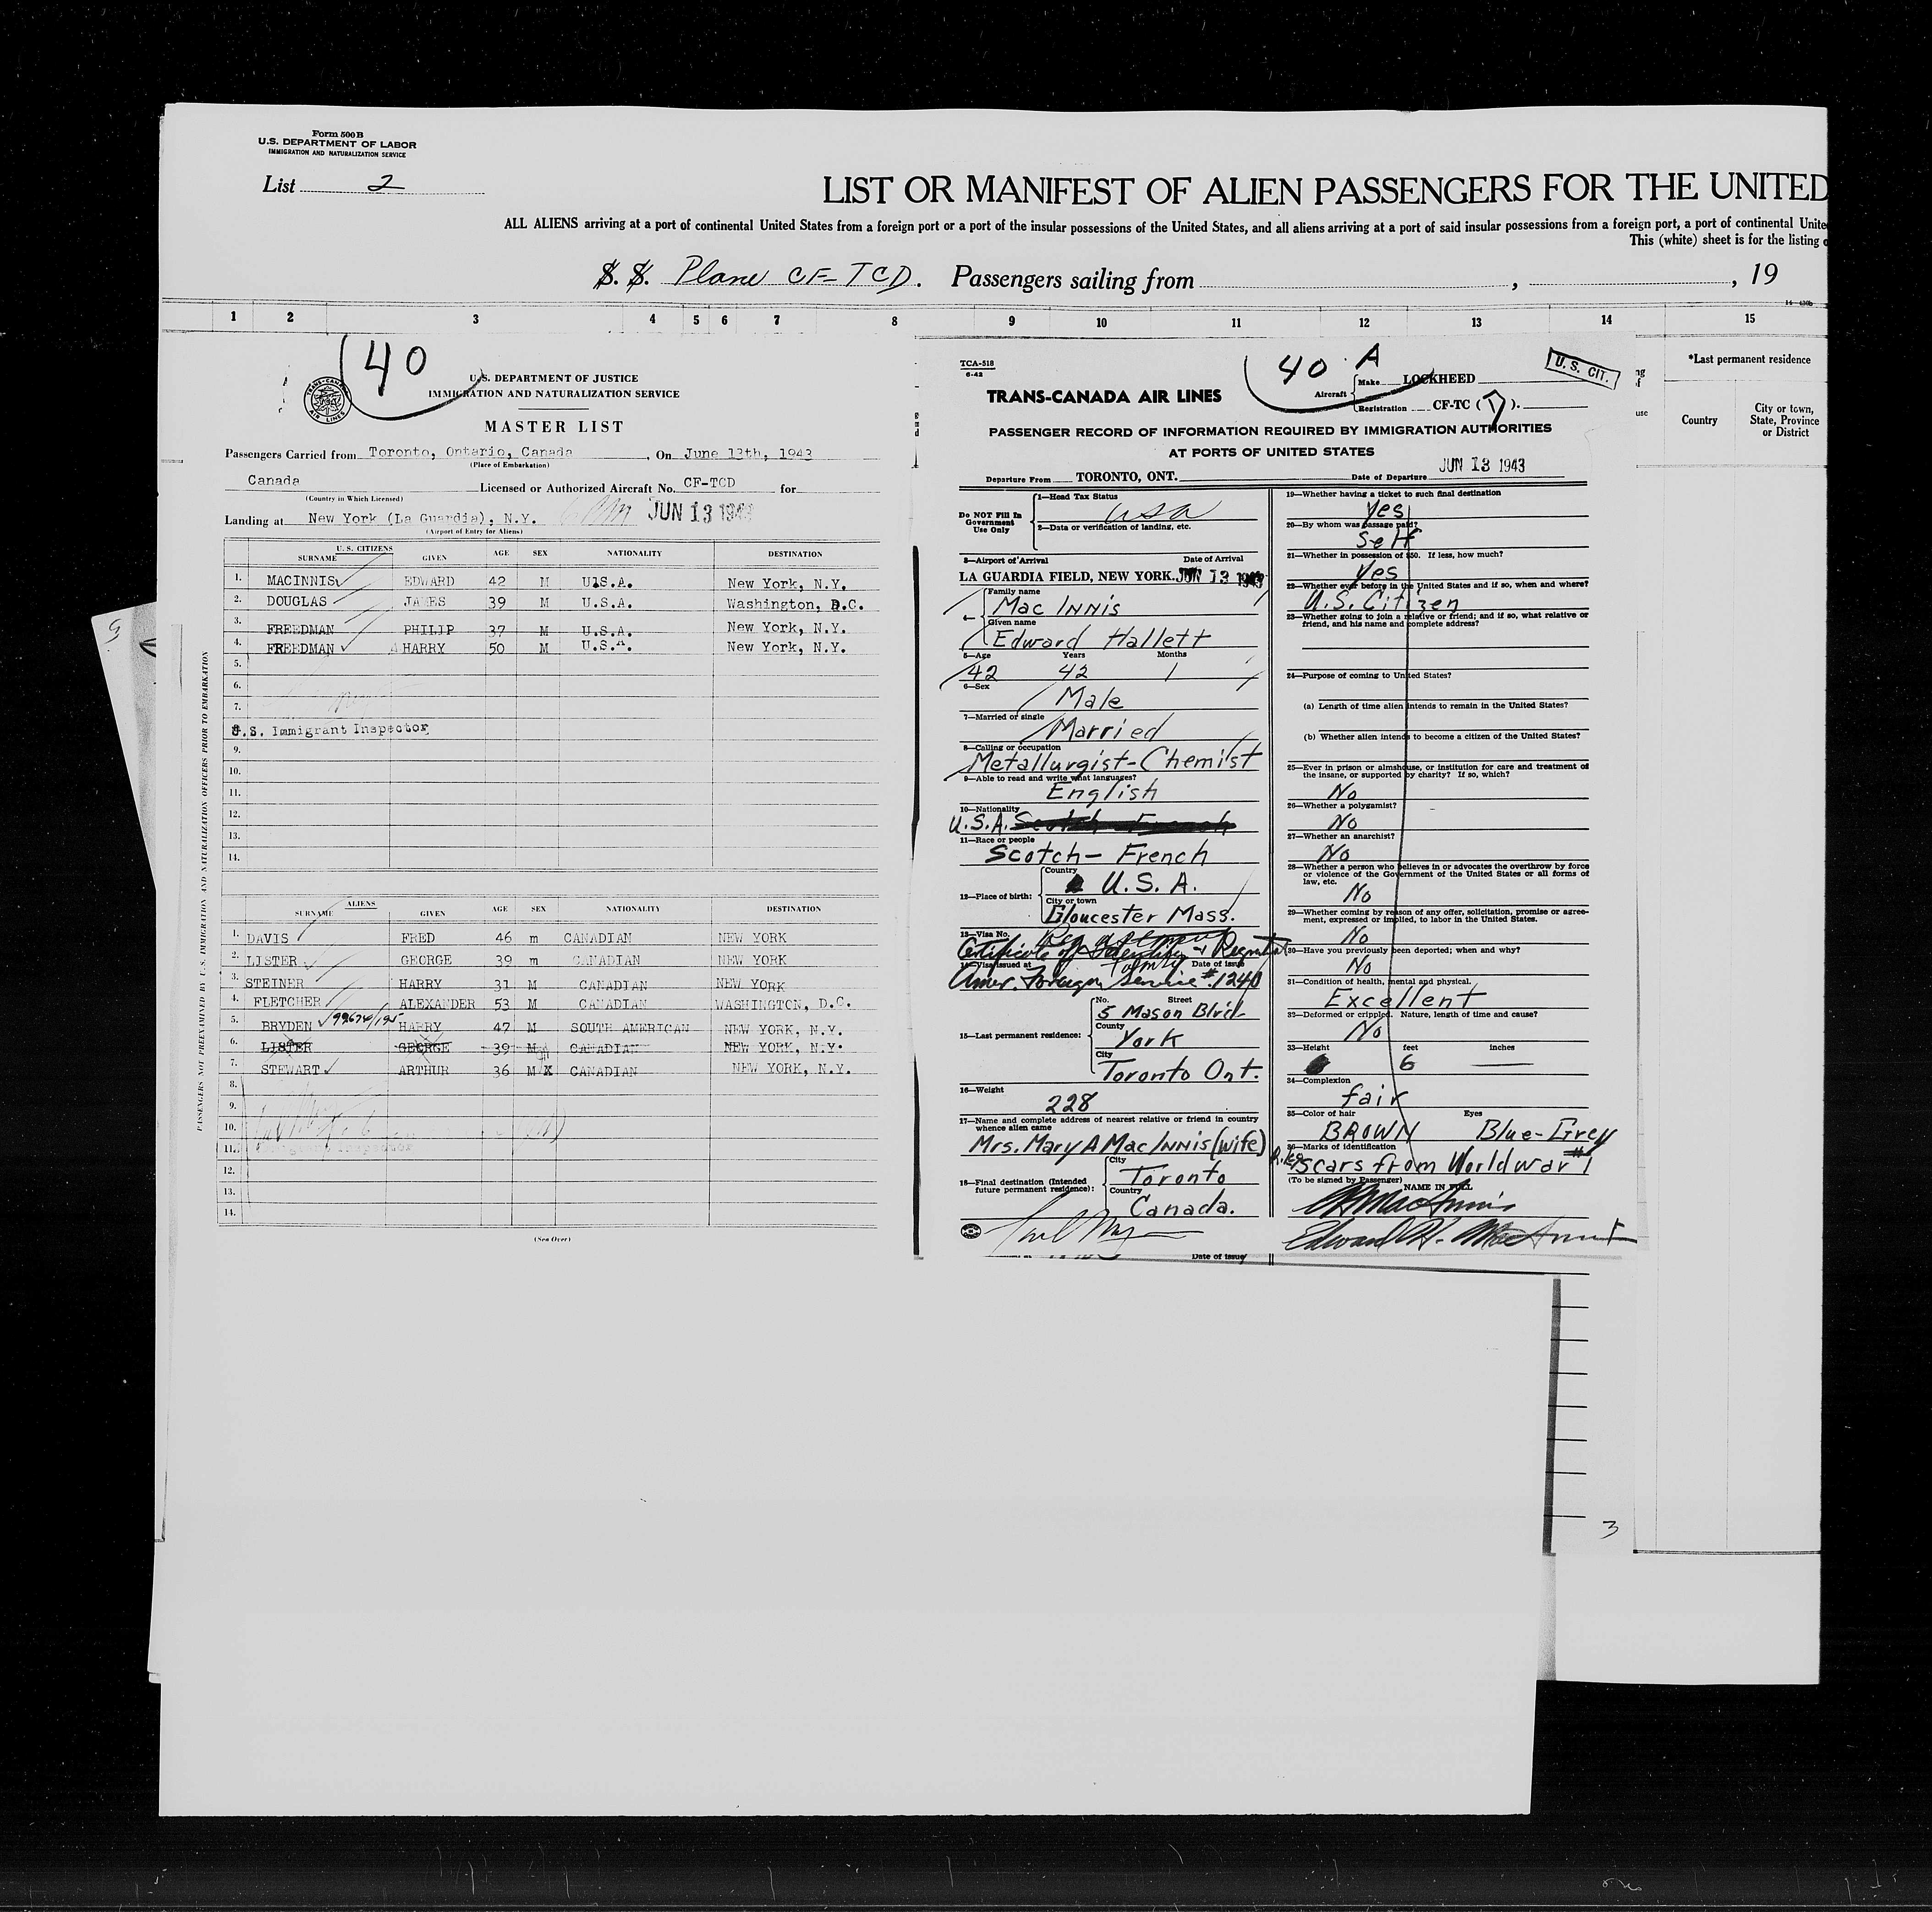 Form 500B
U.S. DEPARTMENT OF LABOR
IMMIGRATION AND NATURALIZATION SERVICE
List 2
LIST OR MANIFEST OF ALIEN PASSENGERS FOR THE UNITED
ALL ALIENS arriving at a port of continental United States from a foreign port or a port of the insular possessions of the United States, and all aliens arriving at a port of said insular possessions from a foreign port, a port of continental Unite
This (white) sheet is for the listing
S. S. Plane CF-TCD. Passengers sailing from , , 19
1 2 3 4 5 6 7 8 9 10 11 12 13 14 15
*Last permanent residence
Country
City or town, State, Province or District
40
TRANS-CANADA AIR LINES
U.S. DEPARTMENT OF JUSTICE
IMMIGRATION AND NATURALIZATION SERVICE
MASTER LIST
Passengers Carried from Toronto, Ontario, Canada, On June 13th, 1943
(Place of Embarkation)
Canada Licensed or Authorized Aircraft No. CF-TCD for
(Country in Which Licensed)
Landing at New York (La Guardia), N.Y. JUN 13 1943
(Airport of Entry for Aliens)
U.S. CITIZENS
SURNAME GIVEN AGE SEX NATIONALITY DESTINATION
1. MACINNIS EDWARD 42 M U1S.A. New York, N.Y.
2. DOUGLAS JAMES 39 M U.S.A. Washington, D.C.
3. FREEDMAN PHILIP 37 M U.S.A. New York, N.Y.
4. FREEDMAN HARRY 50 M U.S.A. New York, N.Y.
5.
6.
7.
U.S. Immigrant Inspector
9.
10.
11.
12.
13.
14.
ALIENS
SURNAME GIVEN AGE SEX NATIONALITY DESTINATION
1. DAVIS FRED 46 m CANADIAN NEW YORK
2. LISTER GEORGE 39 m CANADIAN NEW YORK
3. STEINER HARRY 31 M CANADIAN NEW YORK
4. FLETCHER ALEXANDER 53 M CANADIAN WASHINGTON, D.C.
5. BRYDEN 99674/195 HARRY 47 M SOUTH AMERICAN NEW YORK, N.Y.
6. LISTER GEORGE 39 M CANADIAN NEW YORK, N.Y.
7. STEWART ARTHUR 36 M X CANADIAN NEW YORK, N.Y.
8.
9.
10.
11. Immigrant Inspector
12.
13.
14.
(See Over)
PASSENGERS NOT PREEXAMINED BY U.S. IMMIGRATION AND NATURALIZATION OFFICERS PRIOR TO EMBARKATION
TCA-518
6-42
40 A
U. S. CIT.
TRANS-CANADA AIR LINES
Aircraft Make LOCKHEED
Registration CF-TC (D).
PASSENGER RECORD OF INFORMATION REQUIRED BY IMMIGRATION AUTHORITIES
AT PORTS OF UNITED STATES
Departure From TORONTO, ONT. Date of Departure JUN 13 1943
Do NOT Fill In Government Use Only
1—Head Tax Status
USA
2—Data or verification of landing, etc.
3—Airport of Arrival Date of Arrival
LA GUARDIA FIELD, NEW YORK. JUN 13 1943
4— Family name
Mac Innis
Given name
Edward Hallett
5—Age Years Months
42 42 1
6—Sex
Male
7—Married or single
Married
8—Calling or occupation
Metallurgist-Chemist
9—Able to read and write what languages?
English
10—Nationality
U.S.A. Scotch French
11—Race or people
Scotch - French
12—Place of birth: Country
U.S.A.
City or town
Gloucester Mass.
13—Visa No.
Certificate of Identity & Registrat
14—Visa issued at Date of issue
Amer. Foreign Service #1240
15—Last permanent residence: No. Street
5 Mason Blvd.
County
York
City
Toronto Ont.
16—Weight
228
17—Name and complete address of nearest relative or friend in country whence alien came
Mrs. Mary A Mac Innis (wife)
18—Final destination (Intended future permanent residence): City
Toronto
Country
Canada.
Date of issue
19—Whether having a ticket to such final destination
Yes
20—By whom was passage paid?
Self
21—Whether in possession of $50. If less, how much?
Yes
22—Whether ever before in the United States and if so, when and where?
U.S. Citizen
23—Whether going to join a relative or friend; and if so, what relative or friend, and his name and complete address?
24—Purpose of coming to United States?
(a) Length of time alien intends to remain in the United States?
(b) Whether alien intends to become a citizen of the United States?
25—Ever in prison or almshouse, or institution for care and treatment of the insane, or supported by charity? If so, which?
No
26—Whether a polygamist?
No
27—Whether an anarchist?
No
28—Whether a person who believes in or advocates the overthrow by force or violence of the Government of the United States or all forms of law, etc.
No
29—Whether coming by reason of any offer, solicitation, promise or agreement, expressed or implied, to labor in the United States.
No
30—Have you previously been deported; when and why?
No
31—Condition of health, mental and physical.
Excellent
32—Deformed or crippled. Nature, length of time and cause?
No
33—Height feet inches
6
34—Complexion
fair
35—Color of hair Eyes
BROWN Blue-Grey
36—Marks of identification
R. leg scars from World war #1
(To be signed by Passenger) NAME IN FULL
Edward H. MacInnis
3